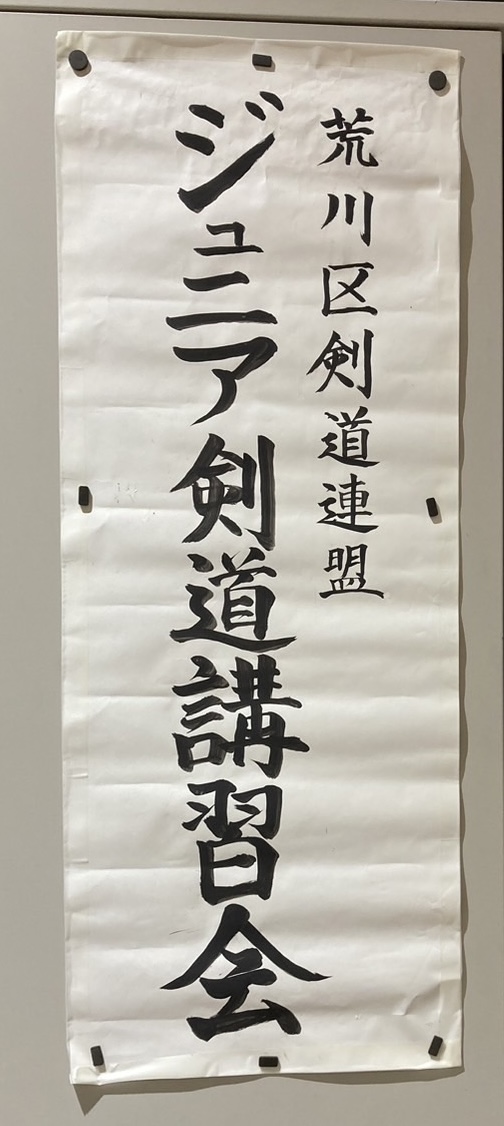 荒川区剣道連盟
ジュニア剣道講習会